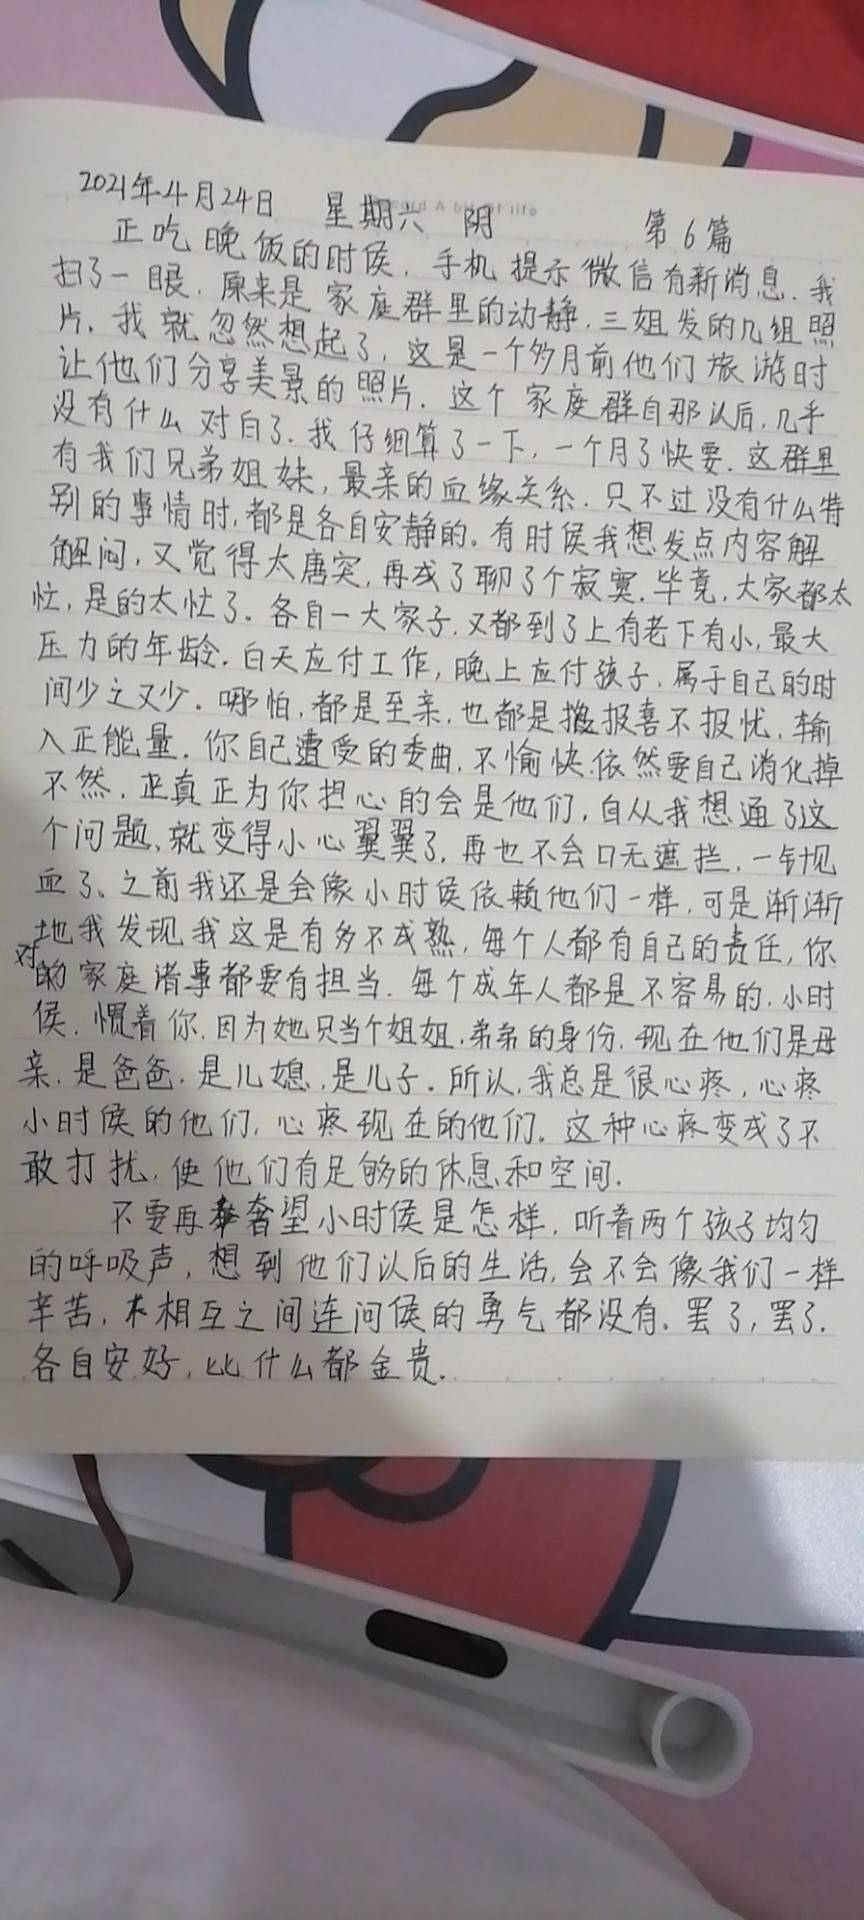 2021年4月24日 星期六 阴 第6篇
正吃晚饭的时侯，手机提示微信有新消息．我
扫了一眼．原来是家庭群里的动静．三姐发的几组照
片、我就忽然想起了，这是一个多月前他们旅游时
让他们分享美景的照片．这个家庭群自那以后，几乎
没有什么对白了．我仔细算了一下，一个月了快要．这群里
有我们兄弟姐妹，最亲的血缘关系．只不过没有什么特
别的事情时，都是各自安静的。有时侯我想发点内容解
解闷，又觉得太唐突，再成了聊了个寂寞．毕竟，大家都太
忙，是的太忙了。各自一大家子，又都到了上有老下有小，最大
压力的年龄．白天应付工作，晚上应付孩子．属于自己的时
间少之又少．哪怕，都是至亲，也都是报喜不报忧，输
入正能量．你自己遭受的委曲，不愉快．依然要自己消化掉
不然，真正为你担心的会是他们，自从我想通了这
个问题、就变得小心翼翼了，再也不会口无遮拦，一针见
血了、之前我还是会像小时侯依赖他们一样，可是渐渐
地我发现我这是有多不成熟，每个人都有自己的责任，你
对的家庭诸事都要有担当．每个成年人都是不容易的．小时
侯．惯着你．因为她只当个姐姐．弟弟的身份．现在他们是母
亲．是爸爸．是儿媳．是儿子．所以，我总是很心疼，心疼
小时侯的他们，心疼现在的他们．这种心疼变成了不
敢打扰，使他们有足够的休息和空间．
不要再奢望小时侯是怎样，听着两个孩子均匀
的呼吸声，想到他们以后的生活，会不会像我们一样
辛苦，相互之间连问侯的勇气都没有．罢了，罢了．
各自安好，比什么都金贵．